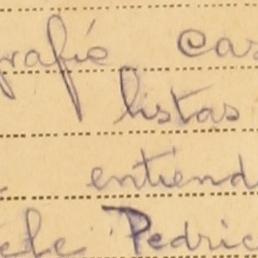 grafié cas
listas
entiend
ele Pedric